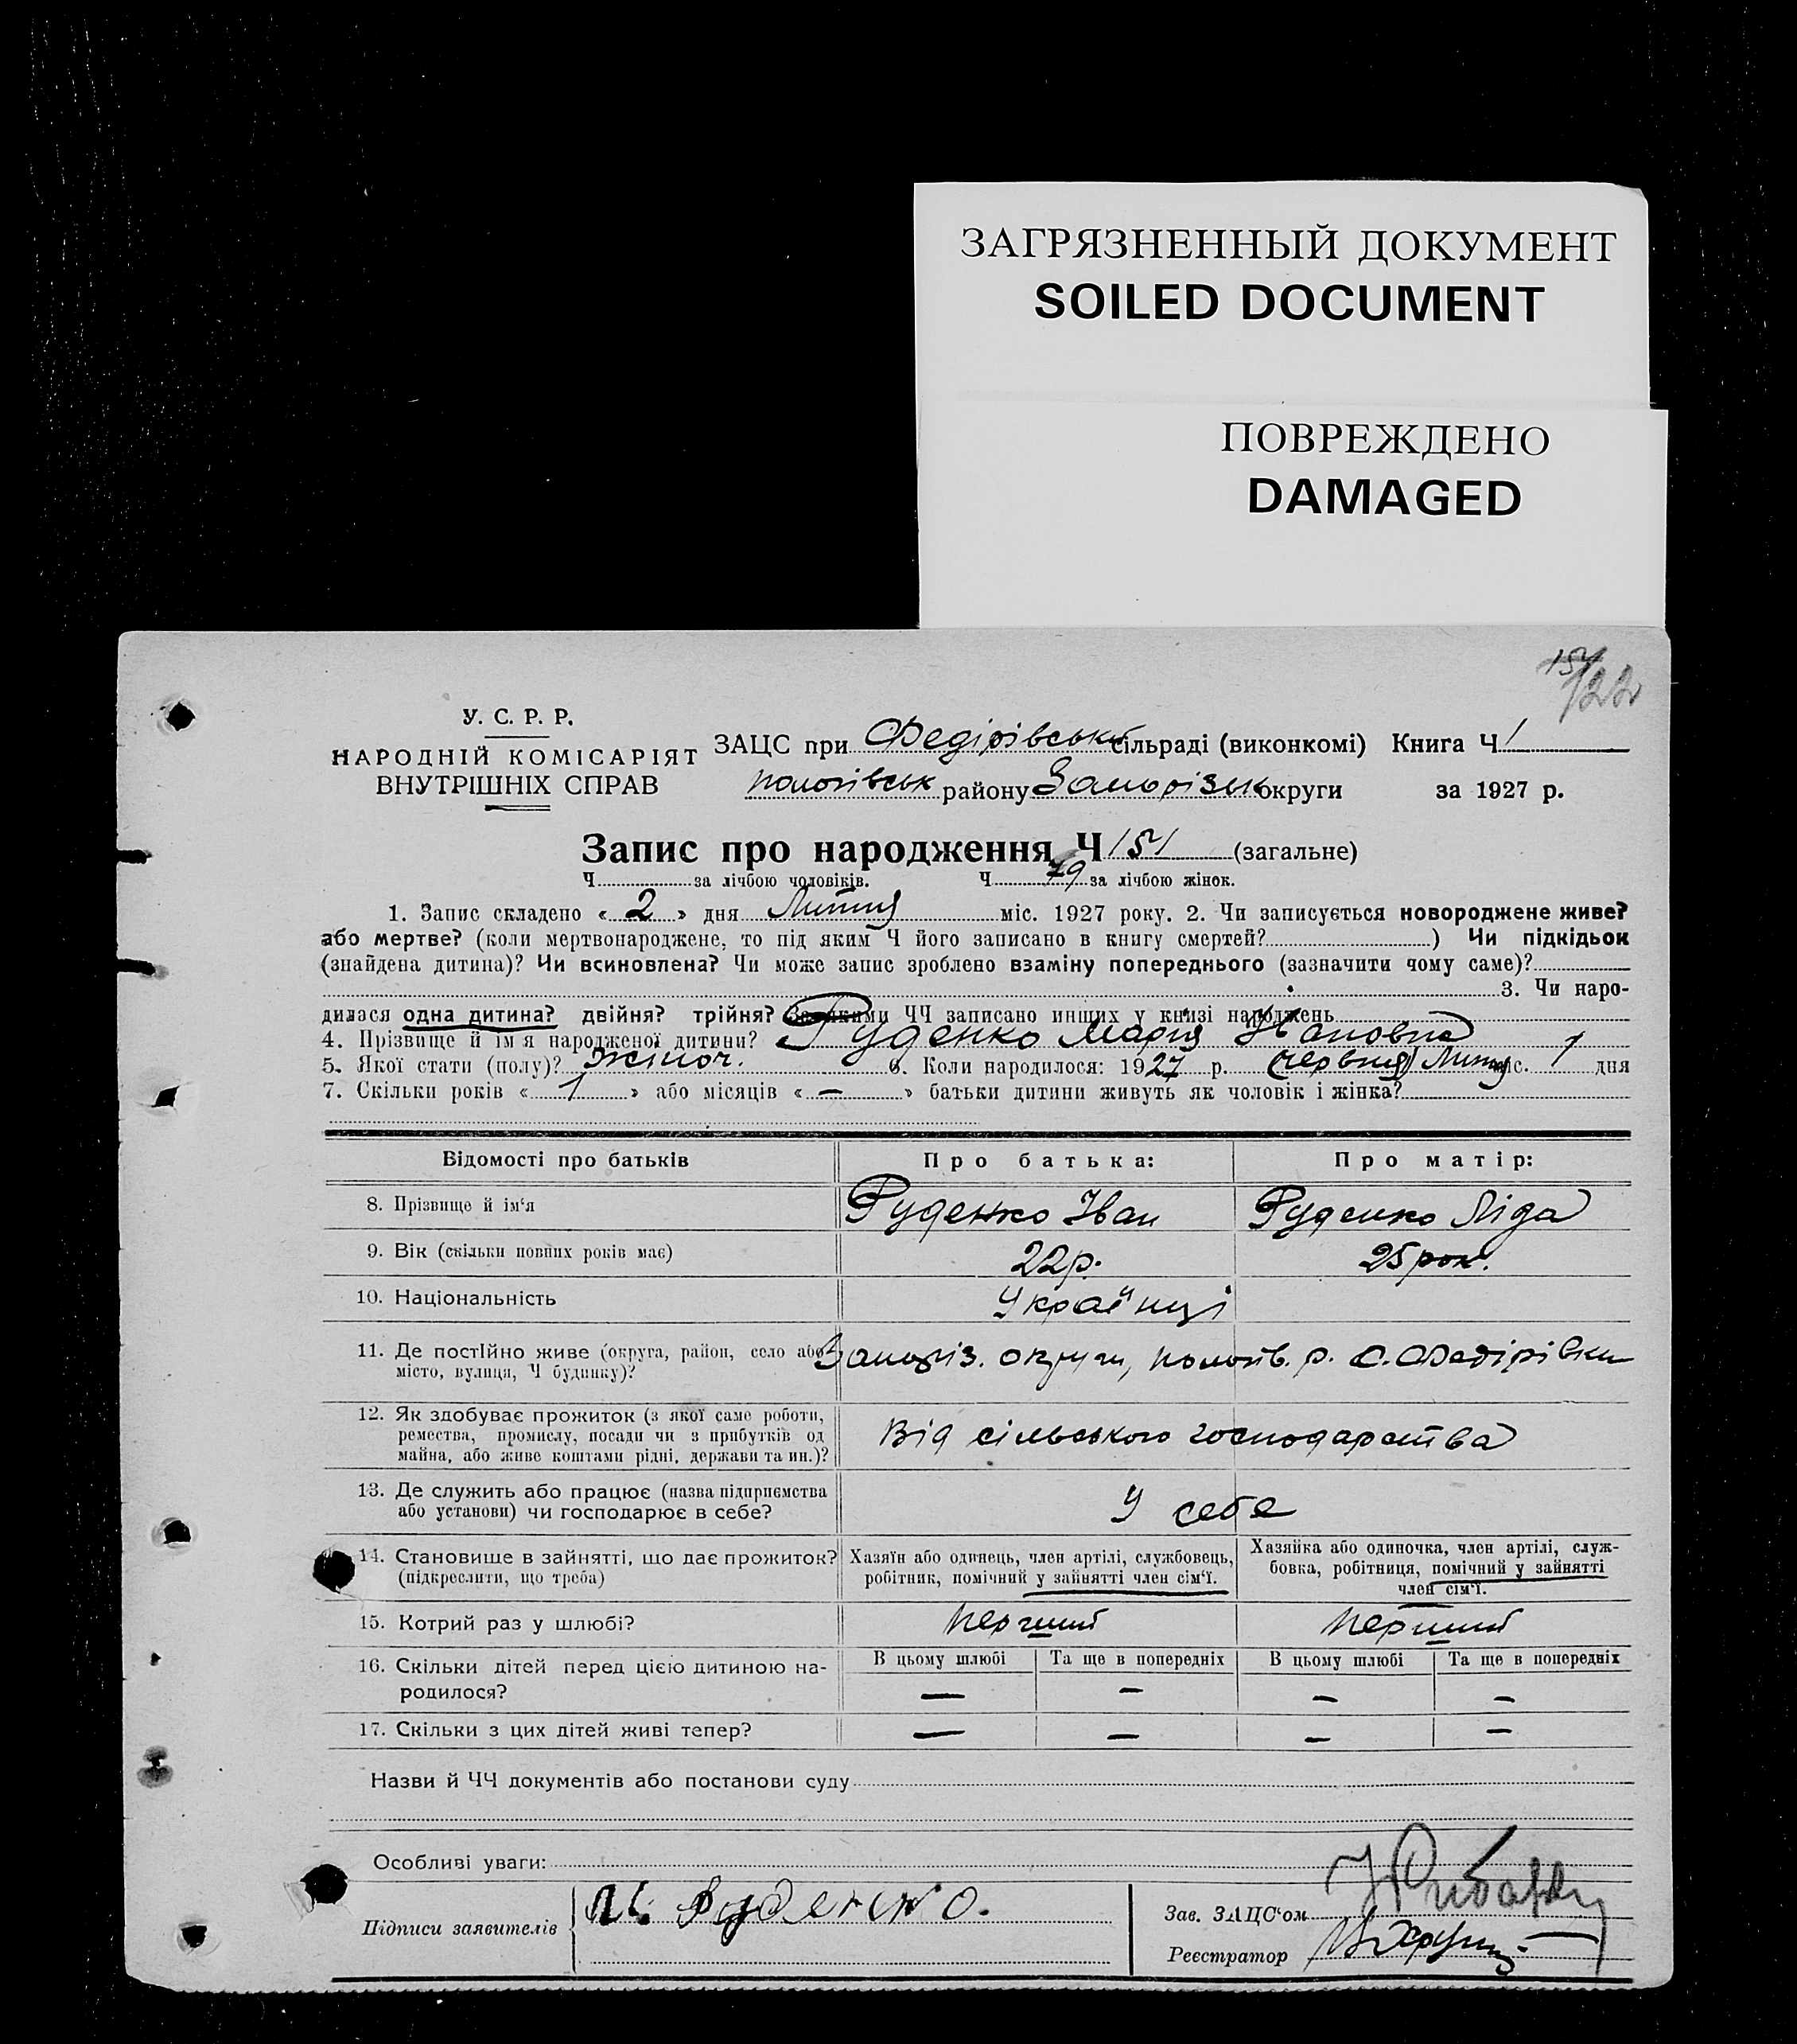 ЗАГРЯЗНЕННЫЙ ДОКУМЕНТ
SOILED DOCUMENT
ПОВРЕЖДЕНО
DAMAGED
151
122
У. С. Р. Р.
НАРОДНІЙ КОМІСАРІЯТ
ВНУТРІШНІХ СПРАВ
ЗАЦС при Федірівській сільраді (виконкомі) Книга Ч 1
Пологівськ району Запорізьк округи за 1927 р.
Запис про народження Ч 151 (загальне)
Ч за лічбою чоловіків. Ч 79 за лічбою жінок.
1. Запис складено « 2 » дня Липця міс. 1927 року. 2. Чи записується новороджене живе?
або мертве? (коли мертвонароджене, то під яким Ч його записано в книгу смертей? ) Чи підкідьок
(знайдена дитина)? Чи всиновлена? Чи може запис зроблено взаміну попереднього (зазначити чому саме)?
3. Чи наро-
дилася одна дитина? двійня? трійня? За якими ЧЧ записано инших у книзі народжень
4. Прізвище й ім'я народженої дитини? Руденко Марія Івановна
5. Якої стати (полу)? жіноч. 6. Коли народилося: 1927 р. (червня) Липця міс. 1 дня
7. Скільки років « 1 » або місяців « — » батьки дитини живуть як чоловік і жінка?
Відомості про батьків Про батька: Про матір:
8. Прізвище й ім'я Руденко Іван Руденко Ліда
9. Вік (скільки повних років має) 22 р. 25 рок.
10. Національність Українці
11. Де постійно живе (округа, район, село або Запоріз. округи, Пологів. р. с. Федірівки
місто, вулиця, Ч будинку)?
12. Як здобуває прожиток (з якої саме роботи,
ремества, промислу, посади чи з прибутків од Від сільського господарства
майна, або живе коштами рідні, держави та ин.)?
13. Де служить або працює (назва підприємства У себе
або установи) чи господарює в себе?
14. Становище в зайнятті, що дає прожиток? Хазяїн або одинець, член артілі, службовець, Хазяйка або одиночка, член артілі, служ-
(підкреслити, що треба) робітник, помічний у зайнятті член сім'ї. бовка, робітниця, помічний у зайнятті
член сім'ї.
15. Котрий раз у шлюбі? Перший Перший
16. Скільки дітей перед цією дитиною на- В цьому шлюбі Та ще в попередніх В цьому шлюбі Та ще в попередніх
родилося? — — — —
17. Скільки з цих дітей живі тепер? — — — —
Назви й ЧЧ документів або постанови суду
Особливі уваги:
Підписи заявителів Руденко.
Зав. ЗАЦС'ом
Реєстратор